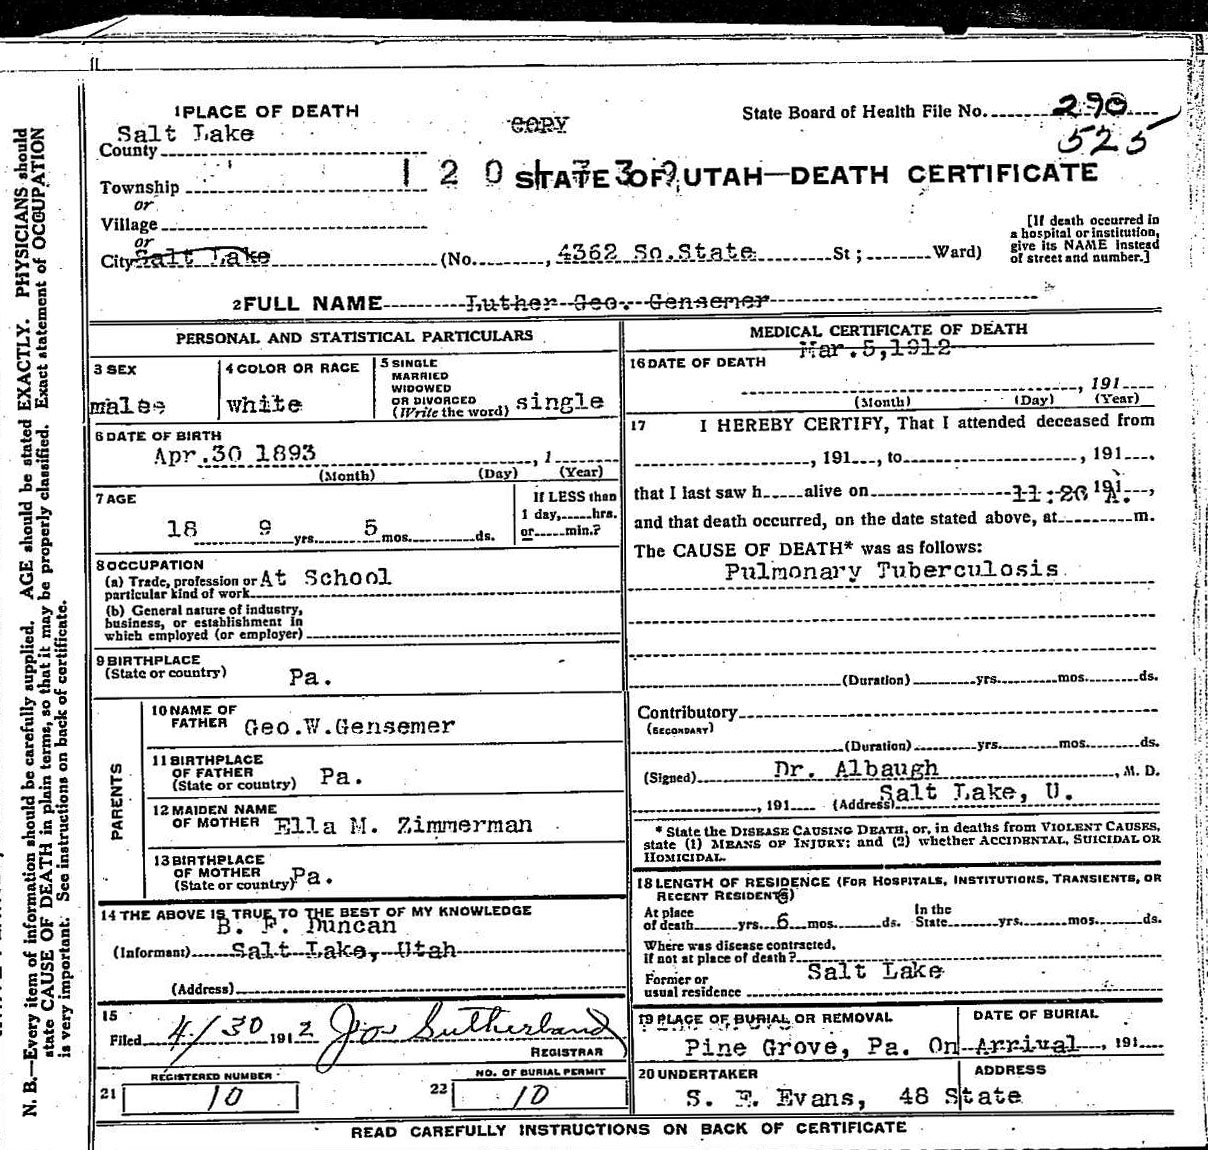 1 PLACE OF DEATH
State Board of Health File No. 290
525
COPY
County Salt Lake
Township
1 2 0
STATE OF UTAH—DEATH CERTIFICATE
or
Village
or
City Salt Lake (No. , 4362 So.State St ; Ward)
[If death occurred in
a hospital or institution,
give its NAME instead
of street and number.]
2 FULL NAME Luther Geo. Gensemer
PERSONAL AND STATISTICAL PARTICULARS
3 SEX
male
4 COLOR OR RACE
white
5 SINGLE
MARRIED
WIDOWED
OR DIVORCED
(Write the word) single
6 DATE OF BIRTH
Apr.30 1893 , 1
(Month) (Day) (Year)
7 AGE
18 9 yrs. 5 mos. ds.
If LESS than
1 day, hrs.
or min.?
8 OCCUPATION
(a) Trade, profession or
particular kind of work At School
(b) General nature of industry,
business, or establishment in
which employed (or employer)
9 BIRTHPLACE
(State or country) Pa.
PARENTS
10 NAME OF
FATHER Geo.W.Gensemer
11 BIRTHPLACE
OF FATHER
(State or country) Pa.
12 MAIDEN NAME
OF MOTHER Ella M. Zimmerman
13 BIRTHPLACE
OF MOTHER
(State or country) Pa.
14 THE ABOVE IS TRUE TO THE BEST OF MY KNOWLEDGE
B. F. Duncan
(Informant) Salt Lake, Utah
(Address)
15
Filed 4/30 1912 Jos Sutherland
REGISTRAR
REGISTERED NUMBER
21 10
NO. OF BURIAL PERMIT
22 10
MEDICAL CERTIFICATE OF DEATH
16 DATE OF DEATH Mar.5,1912
, 191
(Month) (Day) (Year)
17 I HEREBY CERTIFY, That I attended deceased from
, 191 , to , 191 .
that I last saw h alive on 191 ,
11:20 A.
and that death occurred, on the date stated above, at m.
The CAUSE OF DEATH* was as follows:
Pulmonary Tuberculosis
(Duration) yrs. mos. ds.
Contributory
(SECONDARY)
(Duration) yrs. mos. ds.
(Signed) Dr. Albaugh , M. D.
, 191 (Address) Salt Lake, U.
* State the DISEASE CAUSING DEATH, or, in deaths from VIOLENT CAUSES,
state (1) MEANS OF INJURY; and (2) whether ACCIDENTAL, SUICIDAL OR
HOMICIDAL.
18 LENGTH OF RESIDENCE (FOR HOSPITALS, INSTITUTIONS, TRANSIENTS, OR
RECENT RESIDENTS)
At place
of death yrs. 6 mos. ds.
In the
State yrs. mos. ds.
Where was disease contracted,
If not at place of death?
Former or
usual residence Salt Lake
19 PLACE OF BURIAL OR REMOVAL
Pine Grove, Pa.
DATE OF BURIAL
On Arrival , 191
20 UNDERTAKER
S. F. Evans,
ADDRESS
48 State
READ CAREFULLY INSTRUCTIONS ON BACK OF CERTIFICATE
N. B.—Every item of information should be carefully supplied. AGE should be stated EXACTLY. PHYSICIANS should
state CAUSE OF DEATH in plain terms, so that it may be properly classified. Exact statement of OCCUPATION
is very important. See instructions on back of certificate.